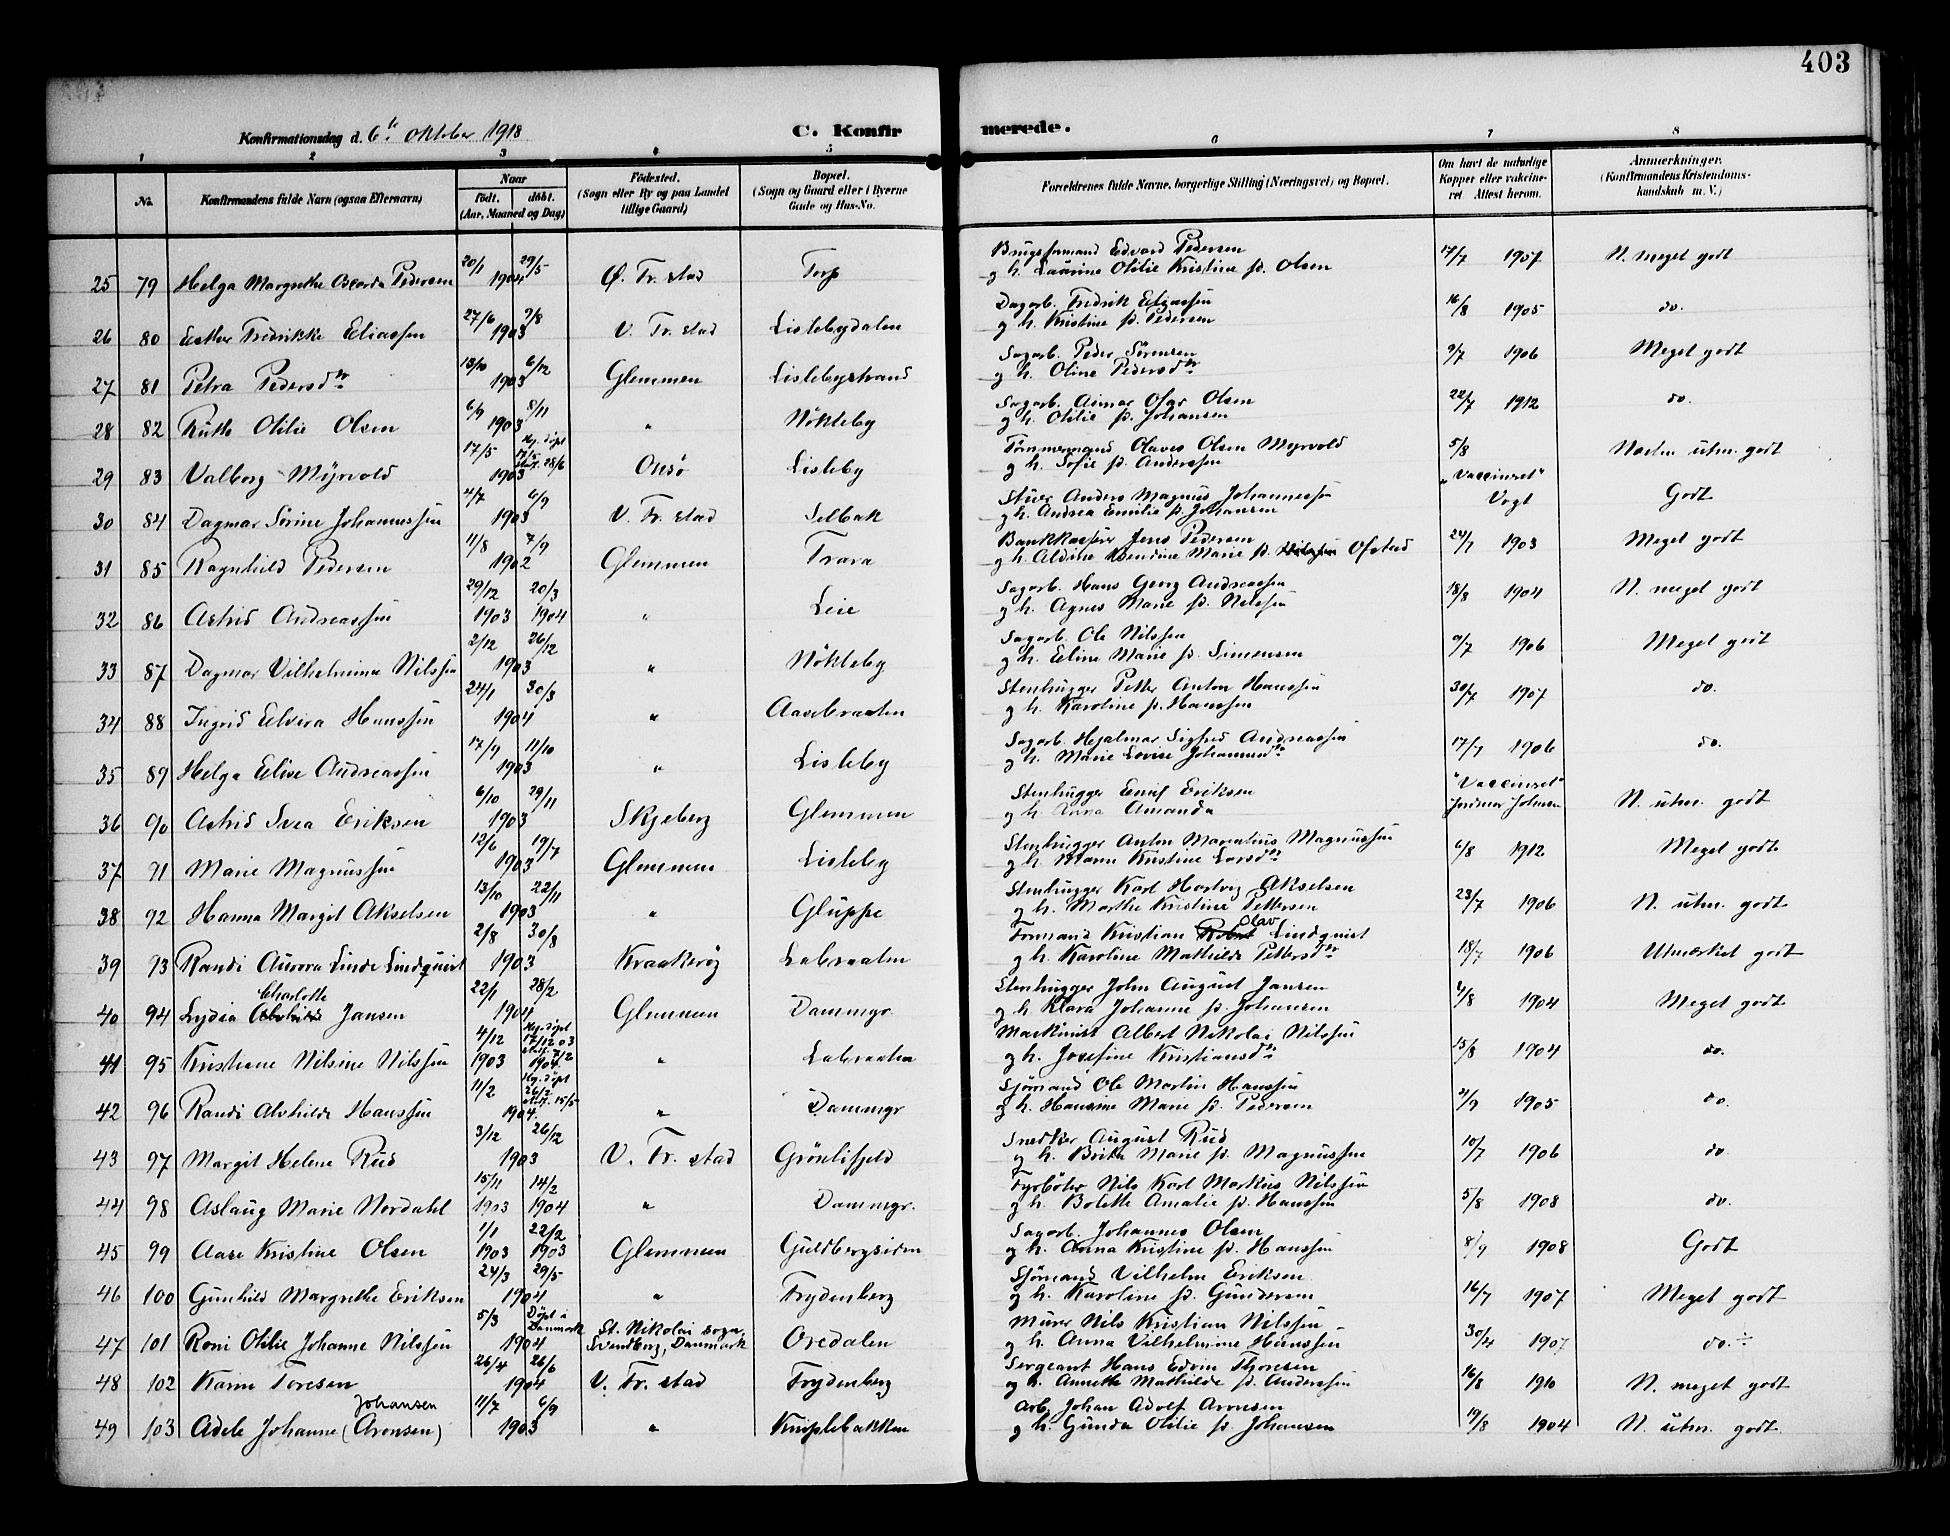 403
Konfirmationsdag d. 6te oktober 1918
C. Konfirmerede.
1 2 3 4 5 6 7 8
No. Konfirmandens fulde Navn (ogsaa Efternavn) Naar født. døbt. (Aar, Maaned og Dag) Fødested. (Sogn eller By og paa Landet tillige Gaard) Bopæl. (Sogn og Gaard eller i Byerne Gade og Hus-No. Forældrenes fulde Navne, borgerlige Stilling (Næringsvei) og Bopæl. Om havt de naturlige Kopper eller vakcineret Attest herom. Anmærkninger. (Konfirmandens Kristendomskundskab m. V.)
25 79 Helga Margrethe Pedersen 20/1 29/5 1904 Ø. Fr. stad Torp Brugsformand Edvard Pedersen
og h. Laurine Otilie Kristine f. Olsen 17/7 1907 N. meget godt
26 80 Esther Fredrikke Eliassen 27/6 9/8 1903 V. Fr. stad Lislebydalen Dagarb. Fredrik Eliassen
og h. Kristine f. Pedersen 16/8 1905 do.
27 81 Petra Pedersdtr 13/10 6/12 1903 Glemmen Lislebystrand Sagarb. Peder Sörensen
og h. Oline Pedersdtr 9/7 1906 Meget godt
28 82 Ruth Otilie Olsen 6/9 8/11 1903 " Nökleby Sagarb. Olaf Olsen
og h. Otilie f. Johansen 22/7 1912 do.
29 83 Valborg Myrvold 17/5 Hj. döpt 17/5 stadf. 28/6 1903 Onsö Lisleby Tömmermand Olaves Olsen Myrvold
og h. Sofie f. Anderssen 5/8 "Vaccineret" Vogt Næsten utm. godt
30 84 Dagmar Sörine Johannessen 4/7 6/9 1903 V. Fr. stad Selbak Stuer Anders Magnus Johannessen
og h. Andrea Emilie f. Johansen Godt
31 85 Ragnhild Pedersen 11/8 7/9 1902 Glemmen Trara Bankkasser Jens Pedersen
og h. Aldine Marie f. Ofsted 24/7 1903 Meget godt
32 86 Astrid Andreassen 29/12 1903 20/3 1904 " Leie Sagarb. Hans Georg Andreassen
og h. Agnes Marie f. Nilssen 18/8 1904 N. meget godt
33 87 Dagmar Vilhelmine Nilssen 2/12 26/12 1903 " Nökleby Sagarb. Ole Nilssen
og h. Eline Marie f. Simensen 9/7 1906 Meget godt
34 88 Ingrid Elvira Hanssen 24/1 30/3 1904 " Aasebraaten Stenhugger Petter Anton Hanssen
og h. Karoline f. Hanssen 30/7 1907 do.
35 89 Helga Elise Andreassen 17/9 11/10 1903 " Lisleby Sagarb. Hjalmar Sigfred Andreassen
og h. Marie Lovise Johannesdtr 17/7 1906 do.
36 90 Astrid Svea Eriksen 6/10 29/11 1903 Skjeberg Glemmen Stenhugger Emil Eriksen
og h. Anna Amanda "Vaccineret" N. utm. godt
37 91 Marie Magnussen 12/6 19/7 1903 Glemmen Lisleby Stenhugger Anton Marentius Magnussen
og h. Maren Kristine Larsdtr 6/8 1912 Meget godt
38 92 Hanna Margit Akselsen 13/10 22/11 1903 " Gluppe Stenhugger Karl Hartvig Akselsen
og h. Marthe Kristine Pettersen 23/7 1906 N. utm. godt
39 93 Randi Aurora Linde Lindquist 2/8 30/8 1903 Kraakeröy Labraaten Formand Kristian Olav Lindquist
og h. Karoline Mathilde Pettersdtr 18/7 1906 Utmærket godt
40 94 Lydia Charlotte Jansen 22/1 28/2 1904 Glemmen Dammgr. Stenhugger John August Jansen
og h. Klara Johanne f. Johansen 4/8 1904 Meget godt
41 95 Kristiane Nilsine Nilssen 4/12 1903 Hj. döpt 17/12 03 stadf. 7/2 1904 " Labraaten Maskinist Albert Nikolai Nilssen
og h. Josefine Kristiansdtr 15/8 1904 do.
42 96 Randi Alvhilde Hanssen 11/2 Hj. döpt 26/2 stadf. 15/5 1904. " Dammgr Sjömand Ole Martin Hanssen
og h. Hansine Marie f. Pedersen 2/9 1905 do.
43 97 Margit Helene Rud 3/12 26/12 1903 V. Fr. stad Grönlifjeld Snedker August Rud
og h. Berthe Marie f. Magnussen 10/7 1906 do
44 98 Aslaug Marie Nordahl 15/11 1903 14/2 1904 " Dammgr. Fyrböter Nils Karl Markus Nilssen
og h. Bolette Amalie f. Hanssen 5/8 1908 do.
45 99 Aase Kristine Olsen 1/1 1903 22/2 1903 Glemmen Guldbergsiden Sagarb. Johannes Olsen
og h. Anna Kristine f. Hanssen 8/9 1908 Godt
46 100 Gunhild Margrethe Eriksen 24/3 29/5 1904 " Frydenberg Sjömand Vilhelm Eriksen
og h. Karoline f. Gundersen 16/7 1907 Meget godt
47 101 Roni Otilie Johanne Nilssen 5/3 1904 Döpt i Danmark St. Nikolai sogn, Svendborg, Danmark Oredalen Murer Nils Kristian Nilssen
og h. Anna Vilhelmine Hanssen 30/4 1907 do. ÷
48 102 Karin Toresen 26/4 26/6 1904 V. Fr. stad Frydenberg Sergeant Hans Edvin Thoresen
og h. Annette Mathilde f. Anderssen 16/8 1910 N. meget godt
49 103 Adele Johanne Johansen (Aronsen) 11/7 6/9 1903 " Kniplebakken Arb. Johan Adolf Aronsen
og h. Gunda Otilie f. Johansen 19/8 1904 N. utm. godt.